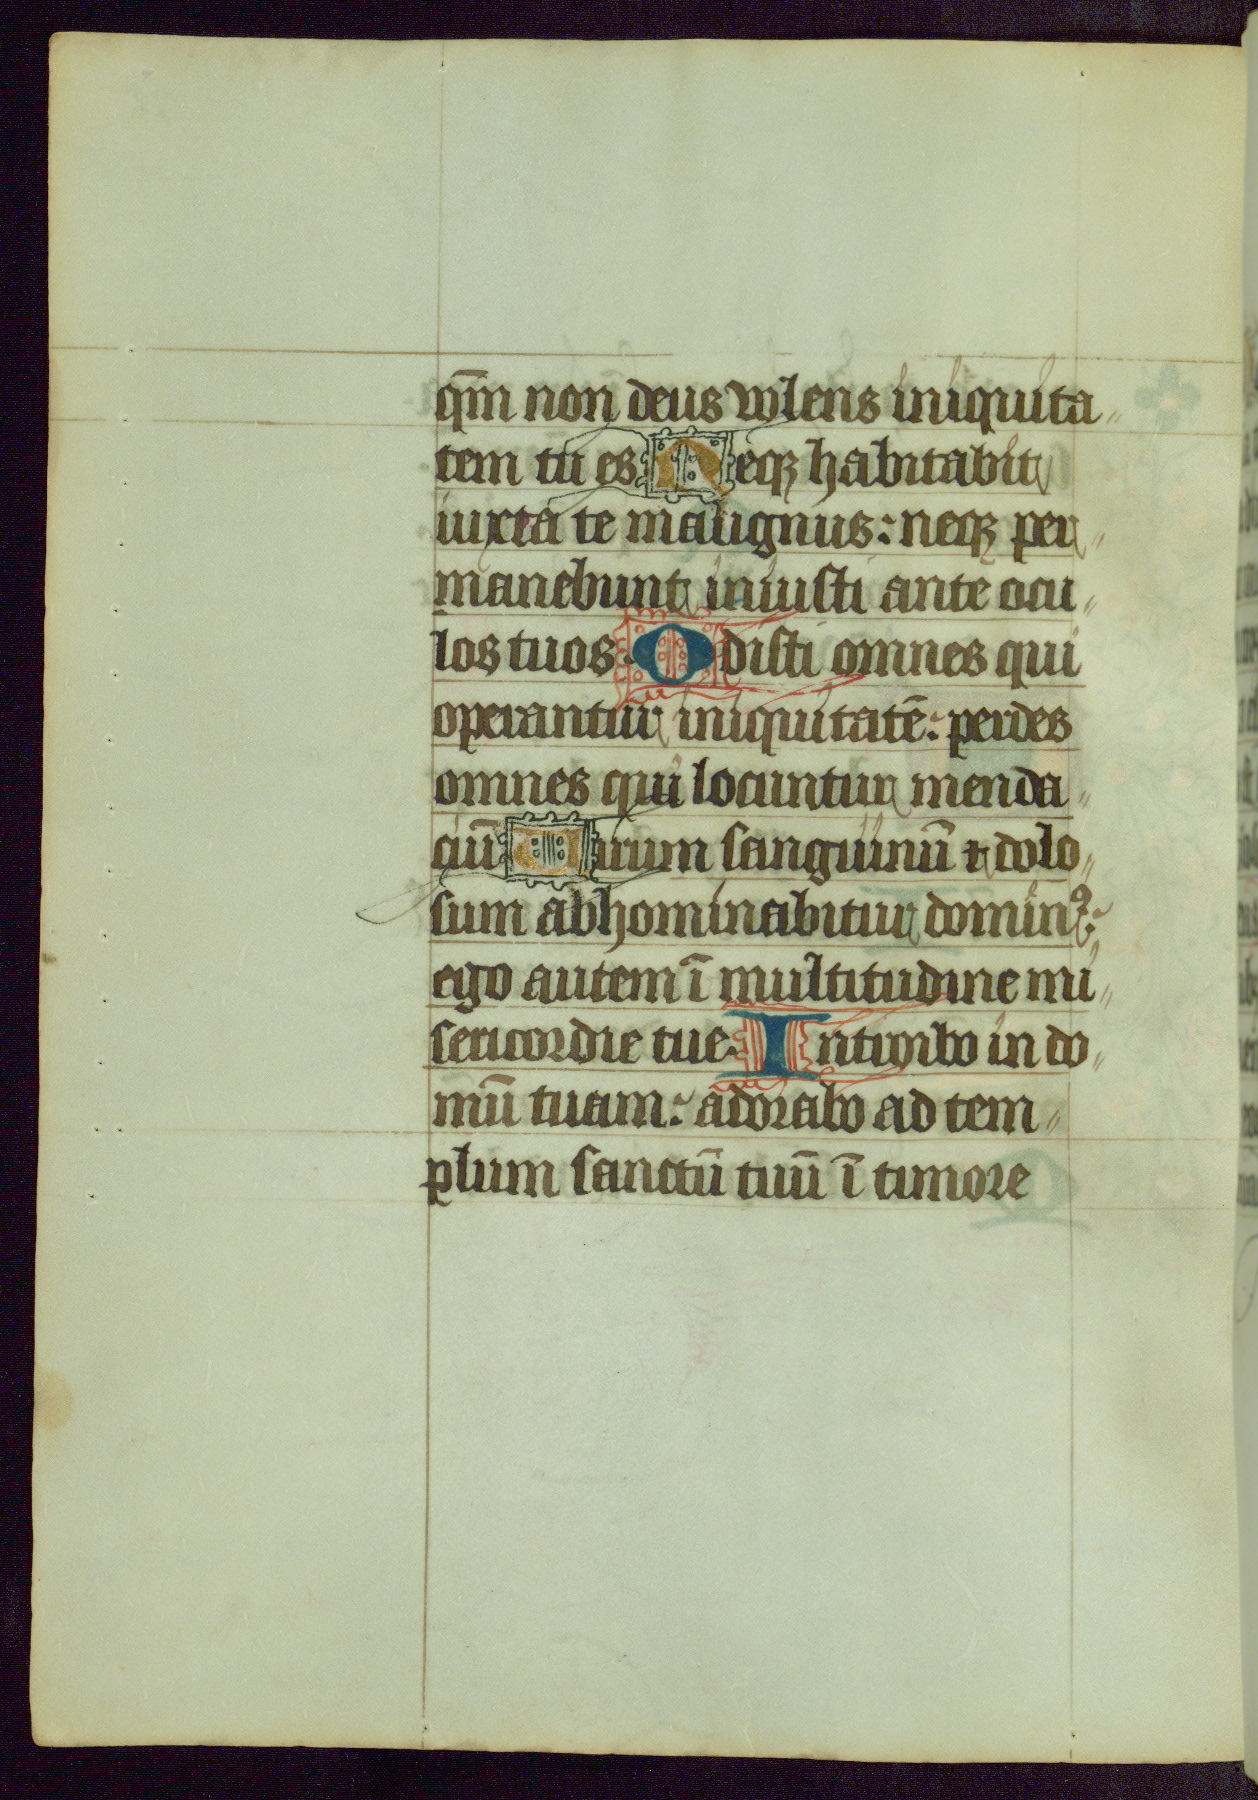 qm̄ non deus volens iniquita〃
tem tu es Neqꝫ habitabit
iuxta te malignus: neqꝫ per〃
manebunt iniusti ante ocu〃
los tuos. Odisti omnes qui
operantur iniquitatē: perdes
omnes qui locuntur menda〃
ciū Virum sanguinū ⁊ dolo〃
sum abhominabitur dominꝰ:
ego autem ī multitudine mi〃
sericordie tue. Introibo in do〃
mū tuam: adorabo ad tem〃
plum sanctū tuū ī timore